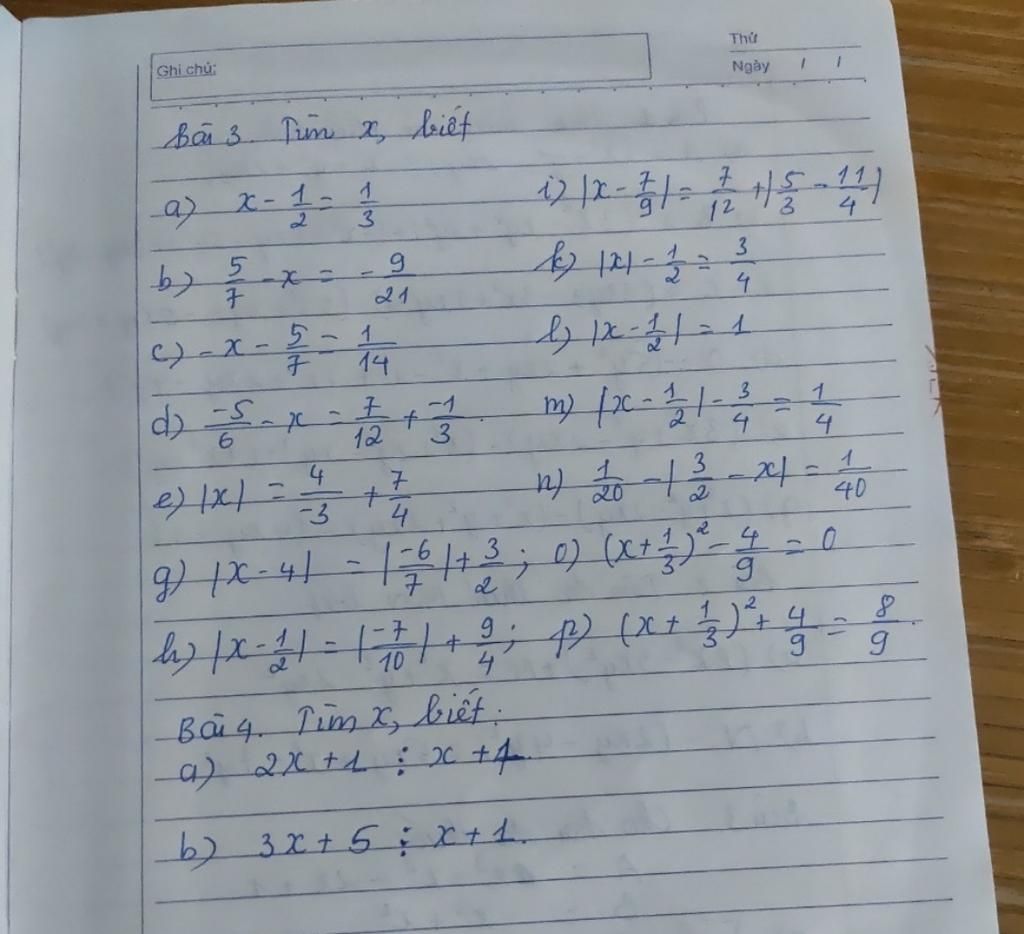 Thứ
Ghi chú:
Ngày / /
Bài 3. Tìm x, biết
a) x - 1/2 = 1/3 i) |x - 7/9| = 7/12 + |5/3 - 11/4|
b) 5/7 - x = - 9/21 k) |x| - 1/2 = 3/4
c) - x - 5/7 = 1/14 l) |x - 1/2| = 1
d) -5/6 - x = 7/12 + -1/3. m) |x - 1/2| - 3/4 = 1/4
e) |x| = 4/-3 + 7/4 n) 1/20 - |3/2 - x| = 1/40
g) |x - 4| = |-6/7| + 3/2; o) (x + 1/3)² - 4/9 = 0
h) |x - 1/2| = |-7/10| + 9/4; p) (x + 1/3)² + 4/9 = 8/9.
Bài 4. Tìm x, biết:
a) 2x + 1 ⋮ x + 1.
b) 3x + 5 ⋮ x + 1.